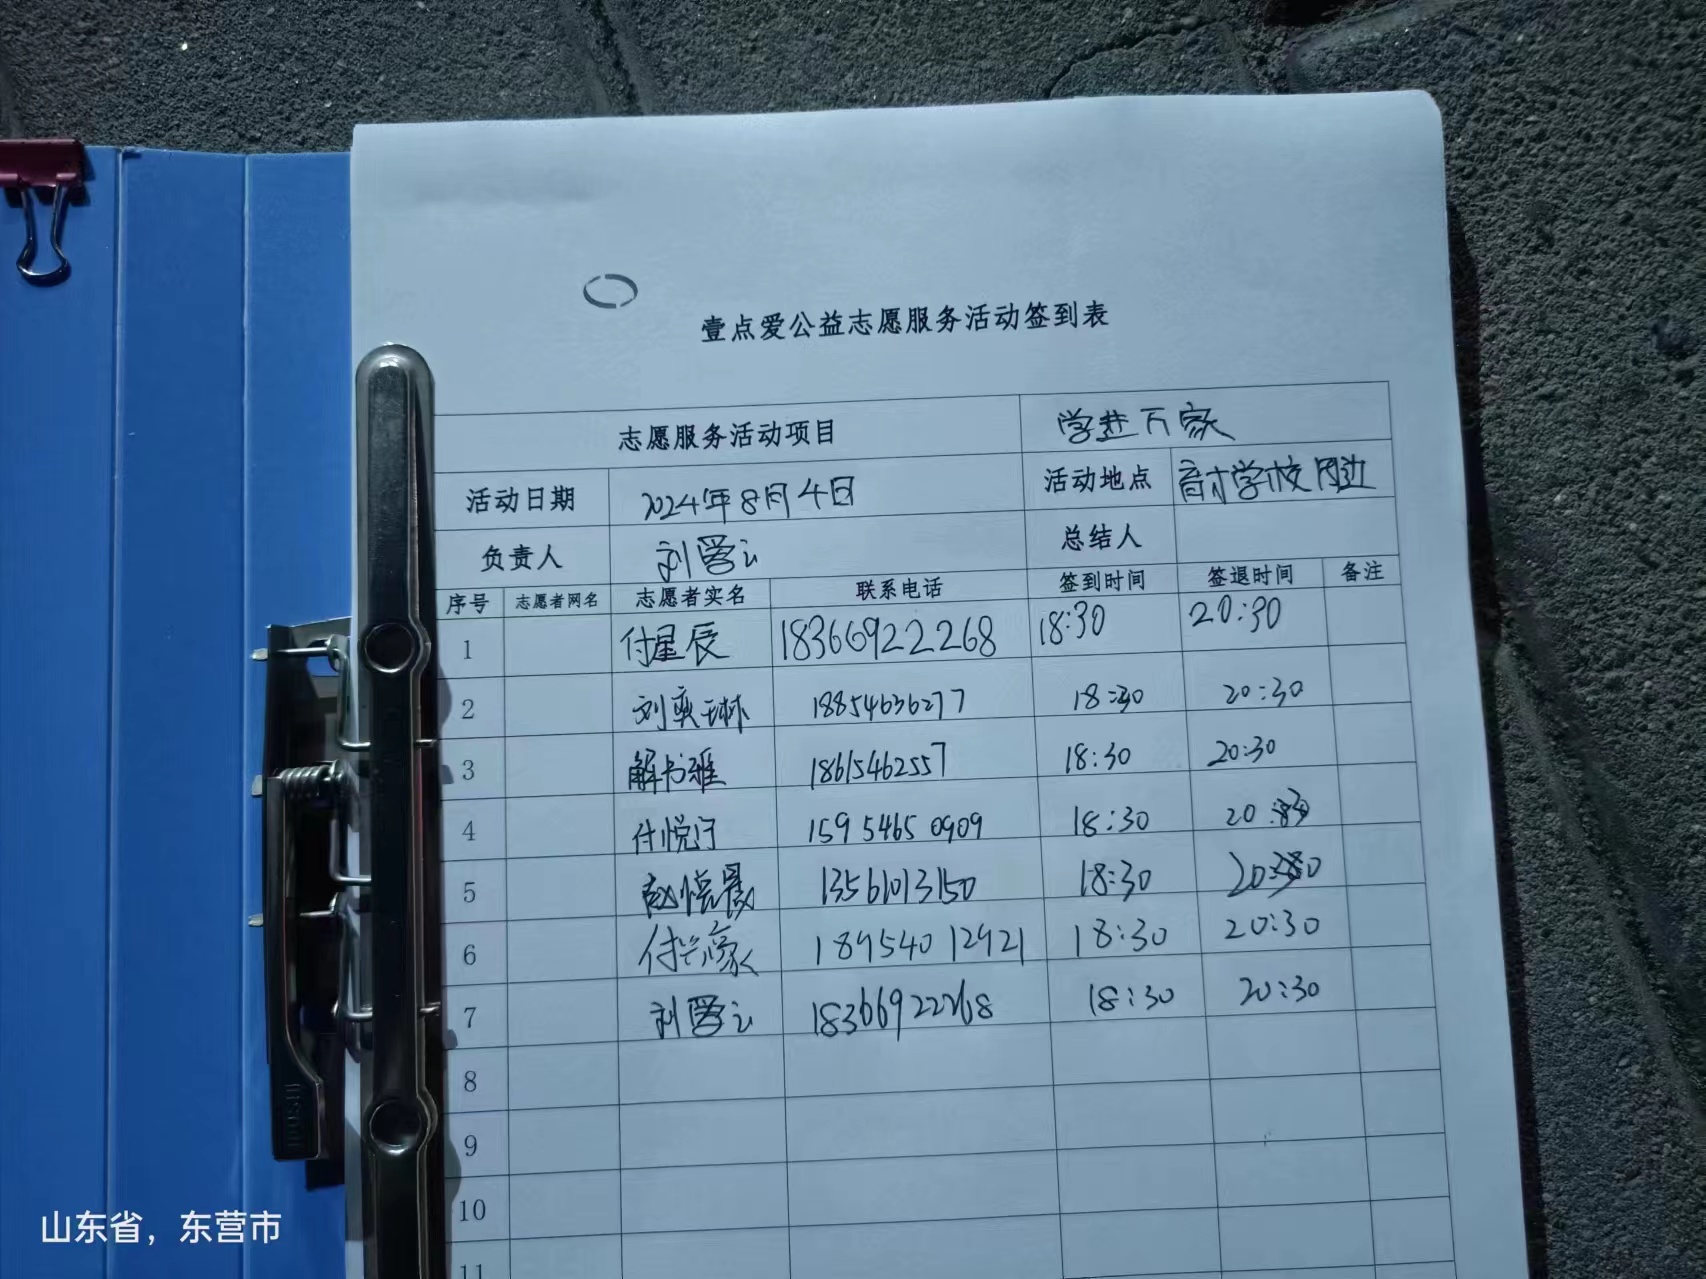 壹点爱公益志愿服务活动签到表
志愿服务活动项目 学进万家
活动日期 2024年8月4日 活动地点 育才学校周边
负责人 刘学云 总结人
序号 志愿者网名 志愿者实名 联系电话 签到时间 签退时间 备注
1 付星辰 18366922268 18:30 20:30
2 刘奕琳 18854636277 18:30 20:30
3 解书雅 18615462557 18:30 20:30
4 付悦 15954650909 18:30 20:30
5 赵 13561013150 18:30 20:30
6 付兴豪 18954012921 18:30 20:30
7 刘学云 18366922268 18:30 20:30
8
9
10
11
山东省，东营市